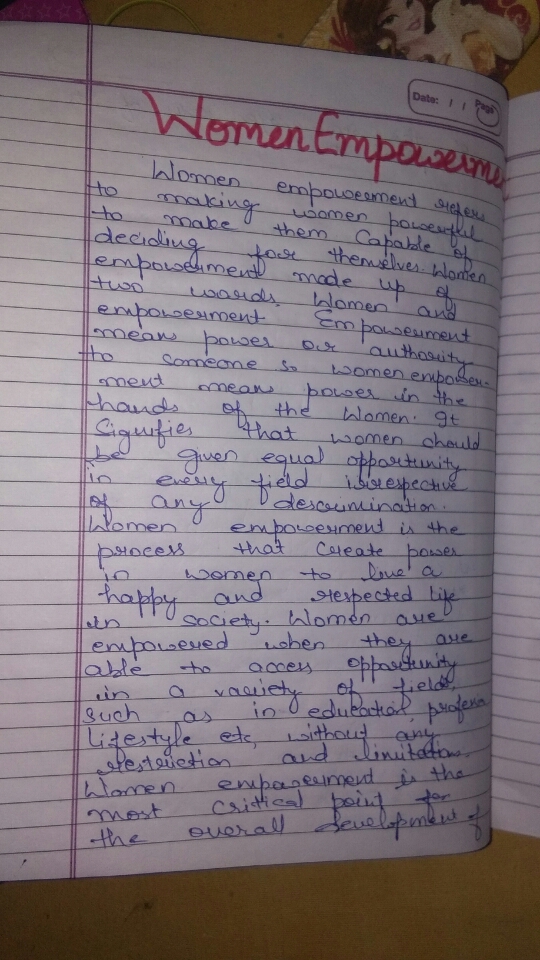 Date: / / Page
Women Empowerme
Women empowerment refers
to making women powerful
to make them Capable of
deciding for themselves. Women
empowerment made up of
two words. Women and
empowerment Empowerment
means power or authority
to someone so women empower-
ment means power in the
hands of the Women. It
Signifies that women should
be given equal opportunity
in every field irrespective
of any descrimination.
Women empowerment is the
process that create power
in women to live a
happy and respected life
in society. Women are
empowered when they are
able to access opportunity
in a variety of fields,
such as in education, 
Lifestyle etc, without any
restruction and limitation.
Women empowerment is the
most critical point for
the overall development of